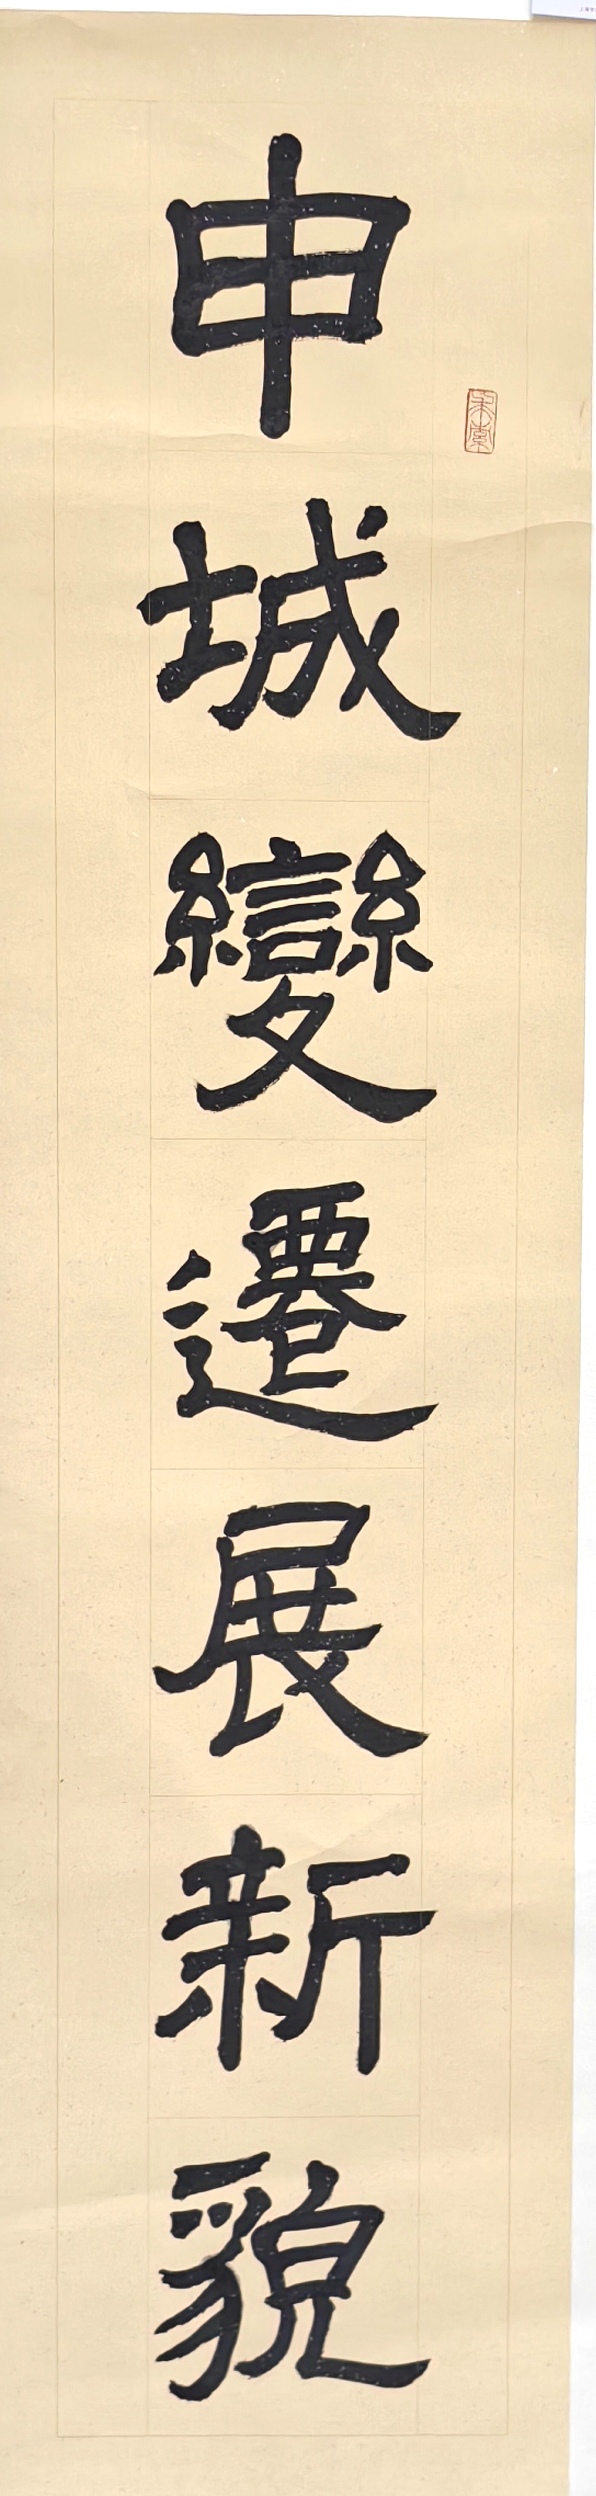 申城變遷展新貌